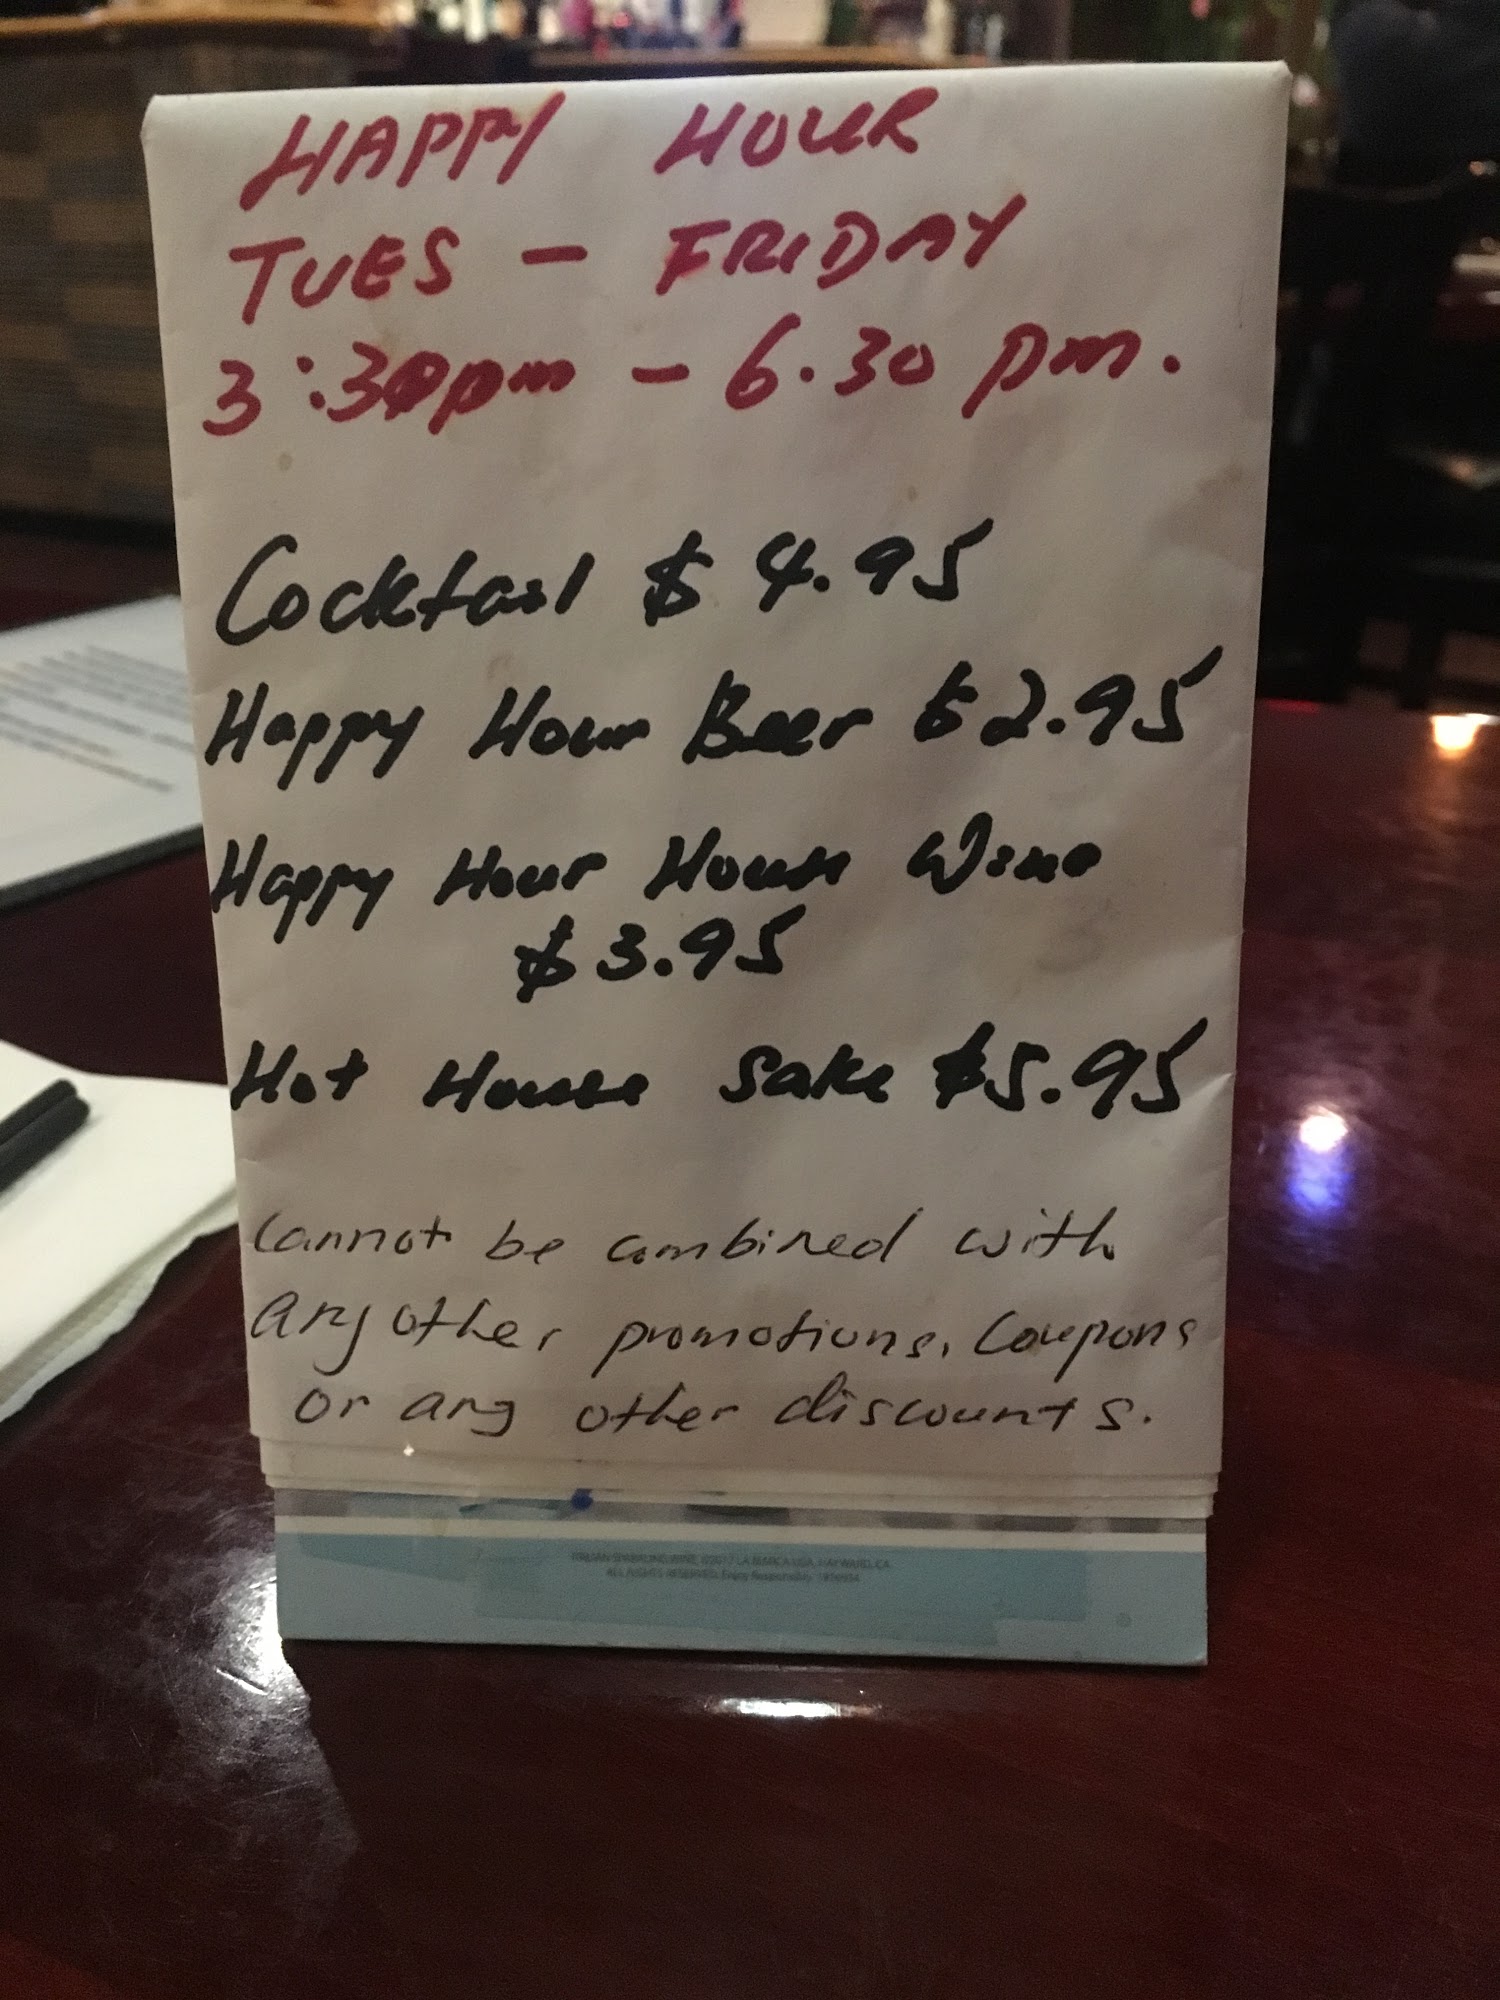 HAPPY HOUR
TUES - FRIDAY
3:30pm - 6.30 pm.
Cocktail $4.95
Happy Hour Beer $2.95
Happy Hour House Wine
$3.95
Hot House Sake $5.95
Cannot be combined with
any other promotions, Coupons
or any other discounts.
ITALIAN SPARKLING WINE, ©2017 LA MARCA USA, HAYWARD, CA
ALL RIGHTS RESERVED. Enjoy Responsibly.